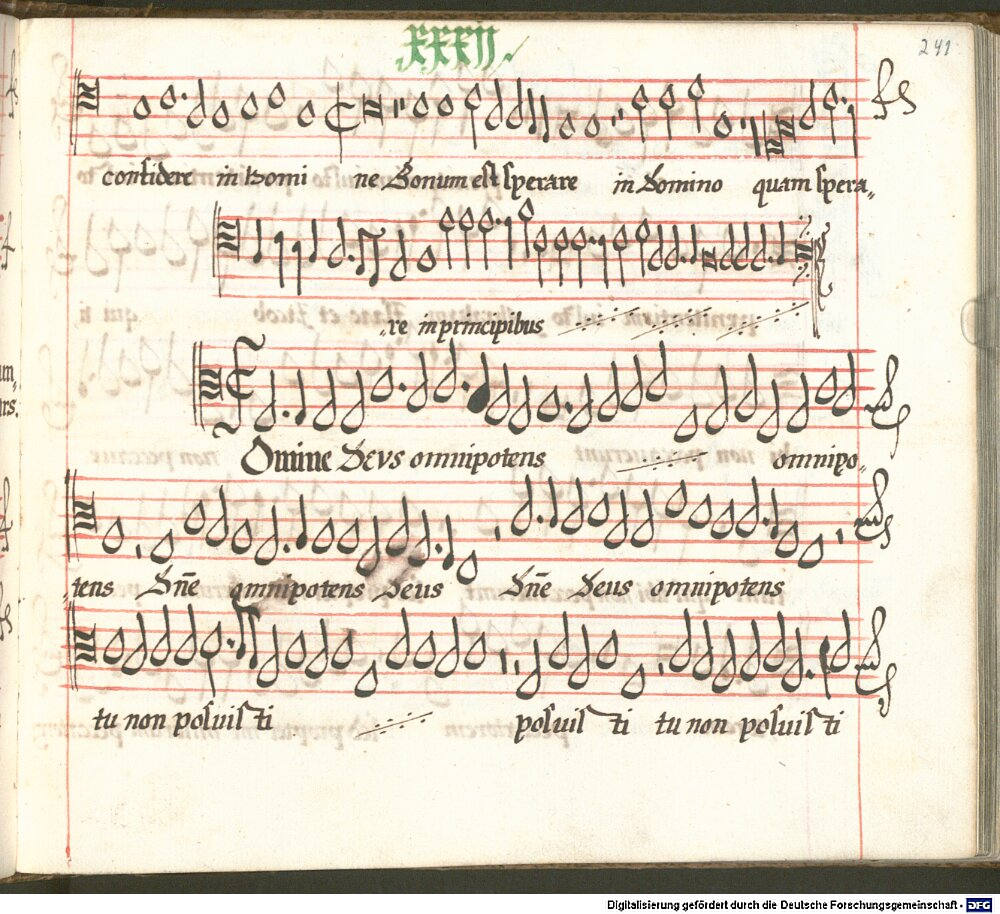 XXXII.
241
confidere in Domi ne Bonum est sperare in Domino quam spera„
„re in principibus
Omine Deus omnipotens omnipo„
„tens Dñe omnipotens Deus Dñe Deus omnipotens
tu non posuisti posuisti tu non posuisti
Digitalisierung gefördert durch die Deutsche Forschungsgemeinschaft - DFG